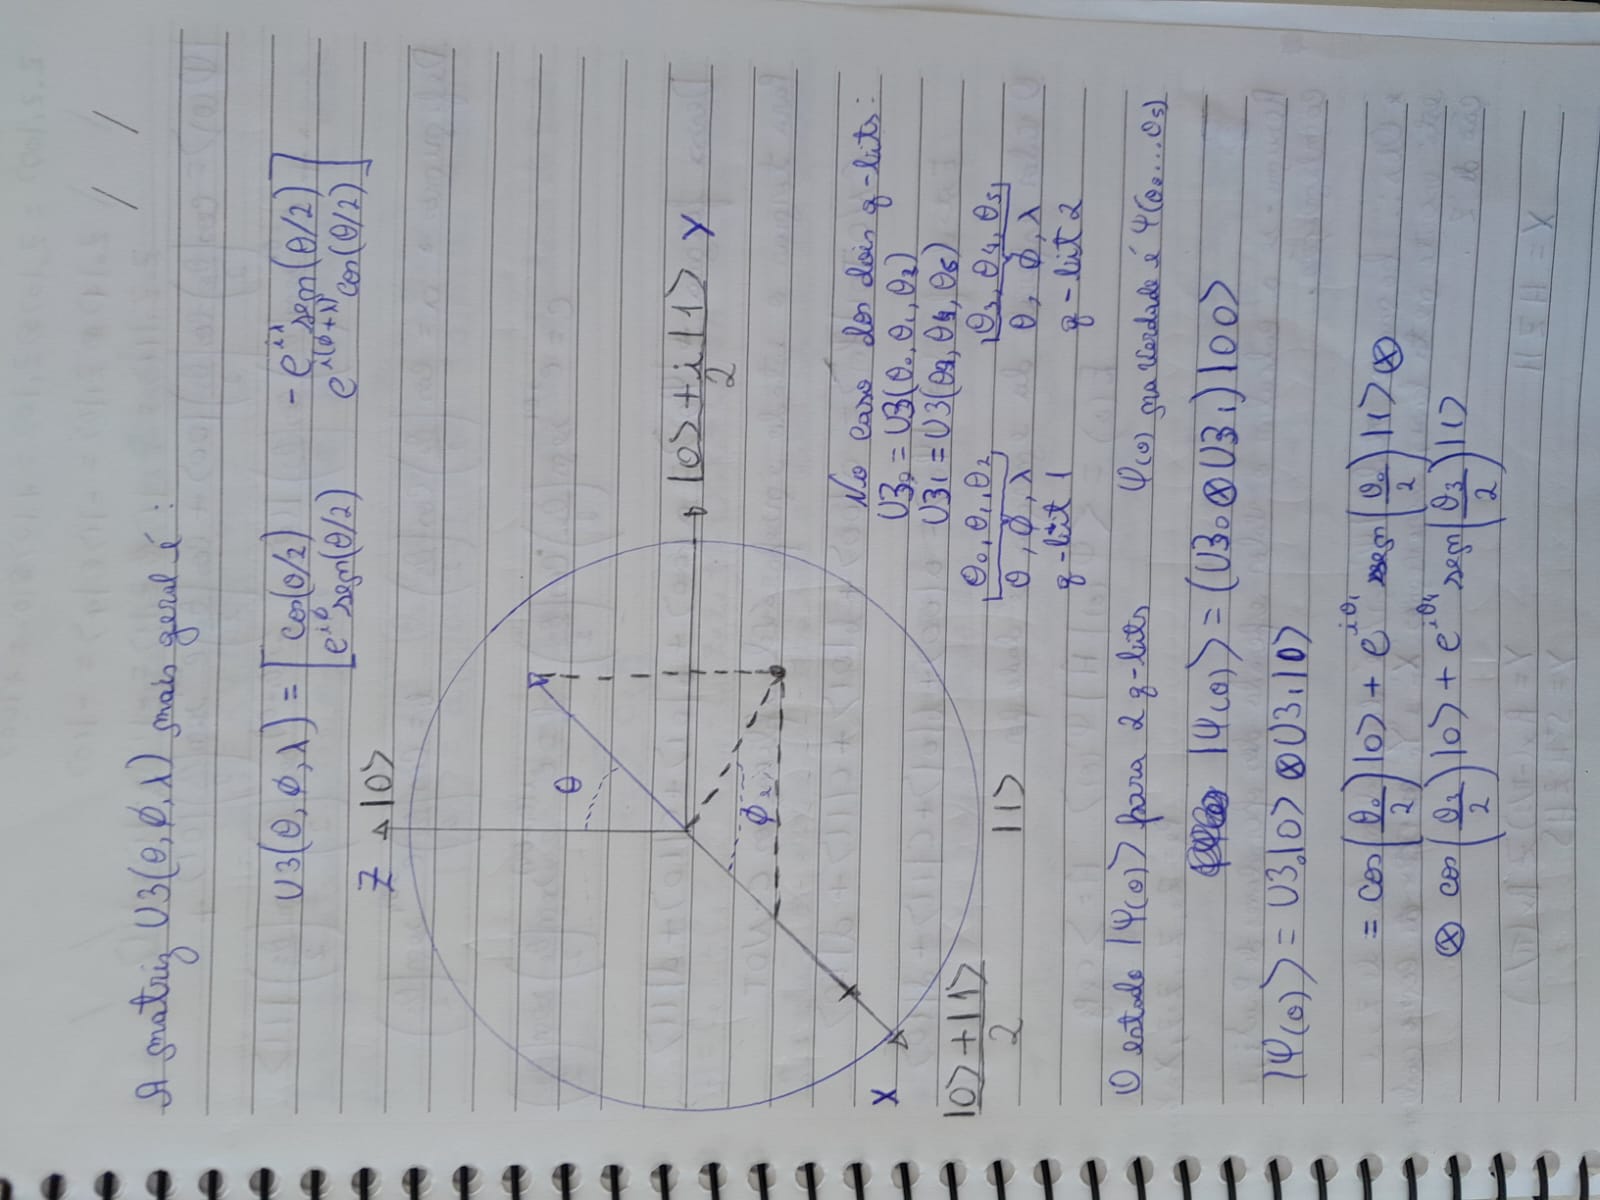 A matriz U3(θ, ϕ, λ) mais geral é:
U3(θ, ϕ, λ) = [ cos(θ/2) -e^{iλ}sen(θ/2)
e^{iϕ}sen(θ/2) e^{i(ϕ+λ)}cos(θ/2) ]
Z |0>
θ
|0>+i|1> Y
2
ϕ
X
|0>+|1>
2
|1>
No caso dos dois q-bits:
U3₀ = U3(θ₀, θ₁, θ₂)
U3₁ = U3(θ₃, θ₄, θ₅)
θ₀, θ₁, θ₂ θ₃, θ₄, θ₅
θ, ϕ, λ θ, ϕ, λ
q-bit 1 q-bit 2
O estado |Ψ(θ)> para 2 q-bits Ψ(θ) na verdade é Ψ(θ₀...θ₅)
|Ψ(θ)> = (U3₀ ⊗ U3₁)|00>
|Ψ(θ)> = U3₀|0> ⊗ U3₁|0>
= cos(θ₀/2)|0> + e^{iθ₁} sen(θ₀/2)|1> ⊗
⊗ cos(θ₃/2)|0> + e^{iθ₄} sen(θ₃/2)|1>